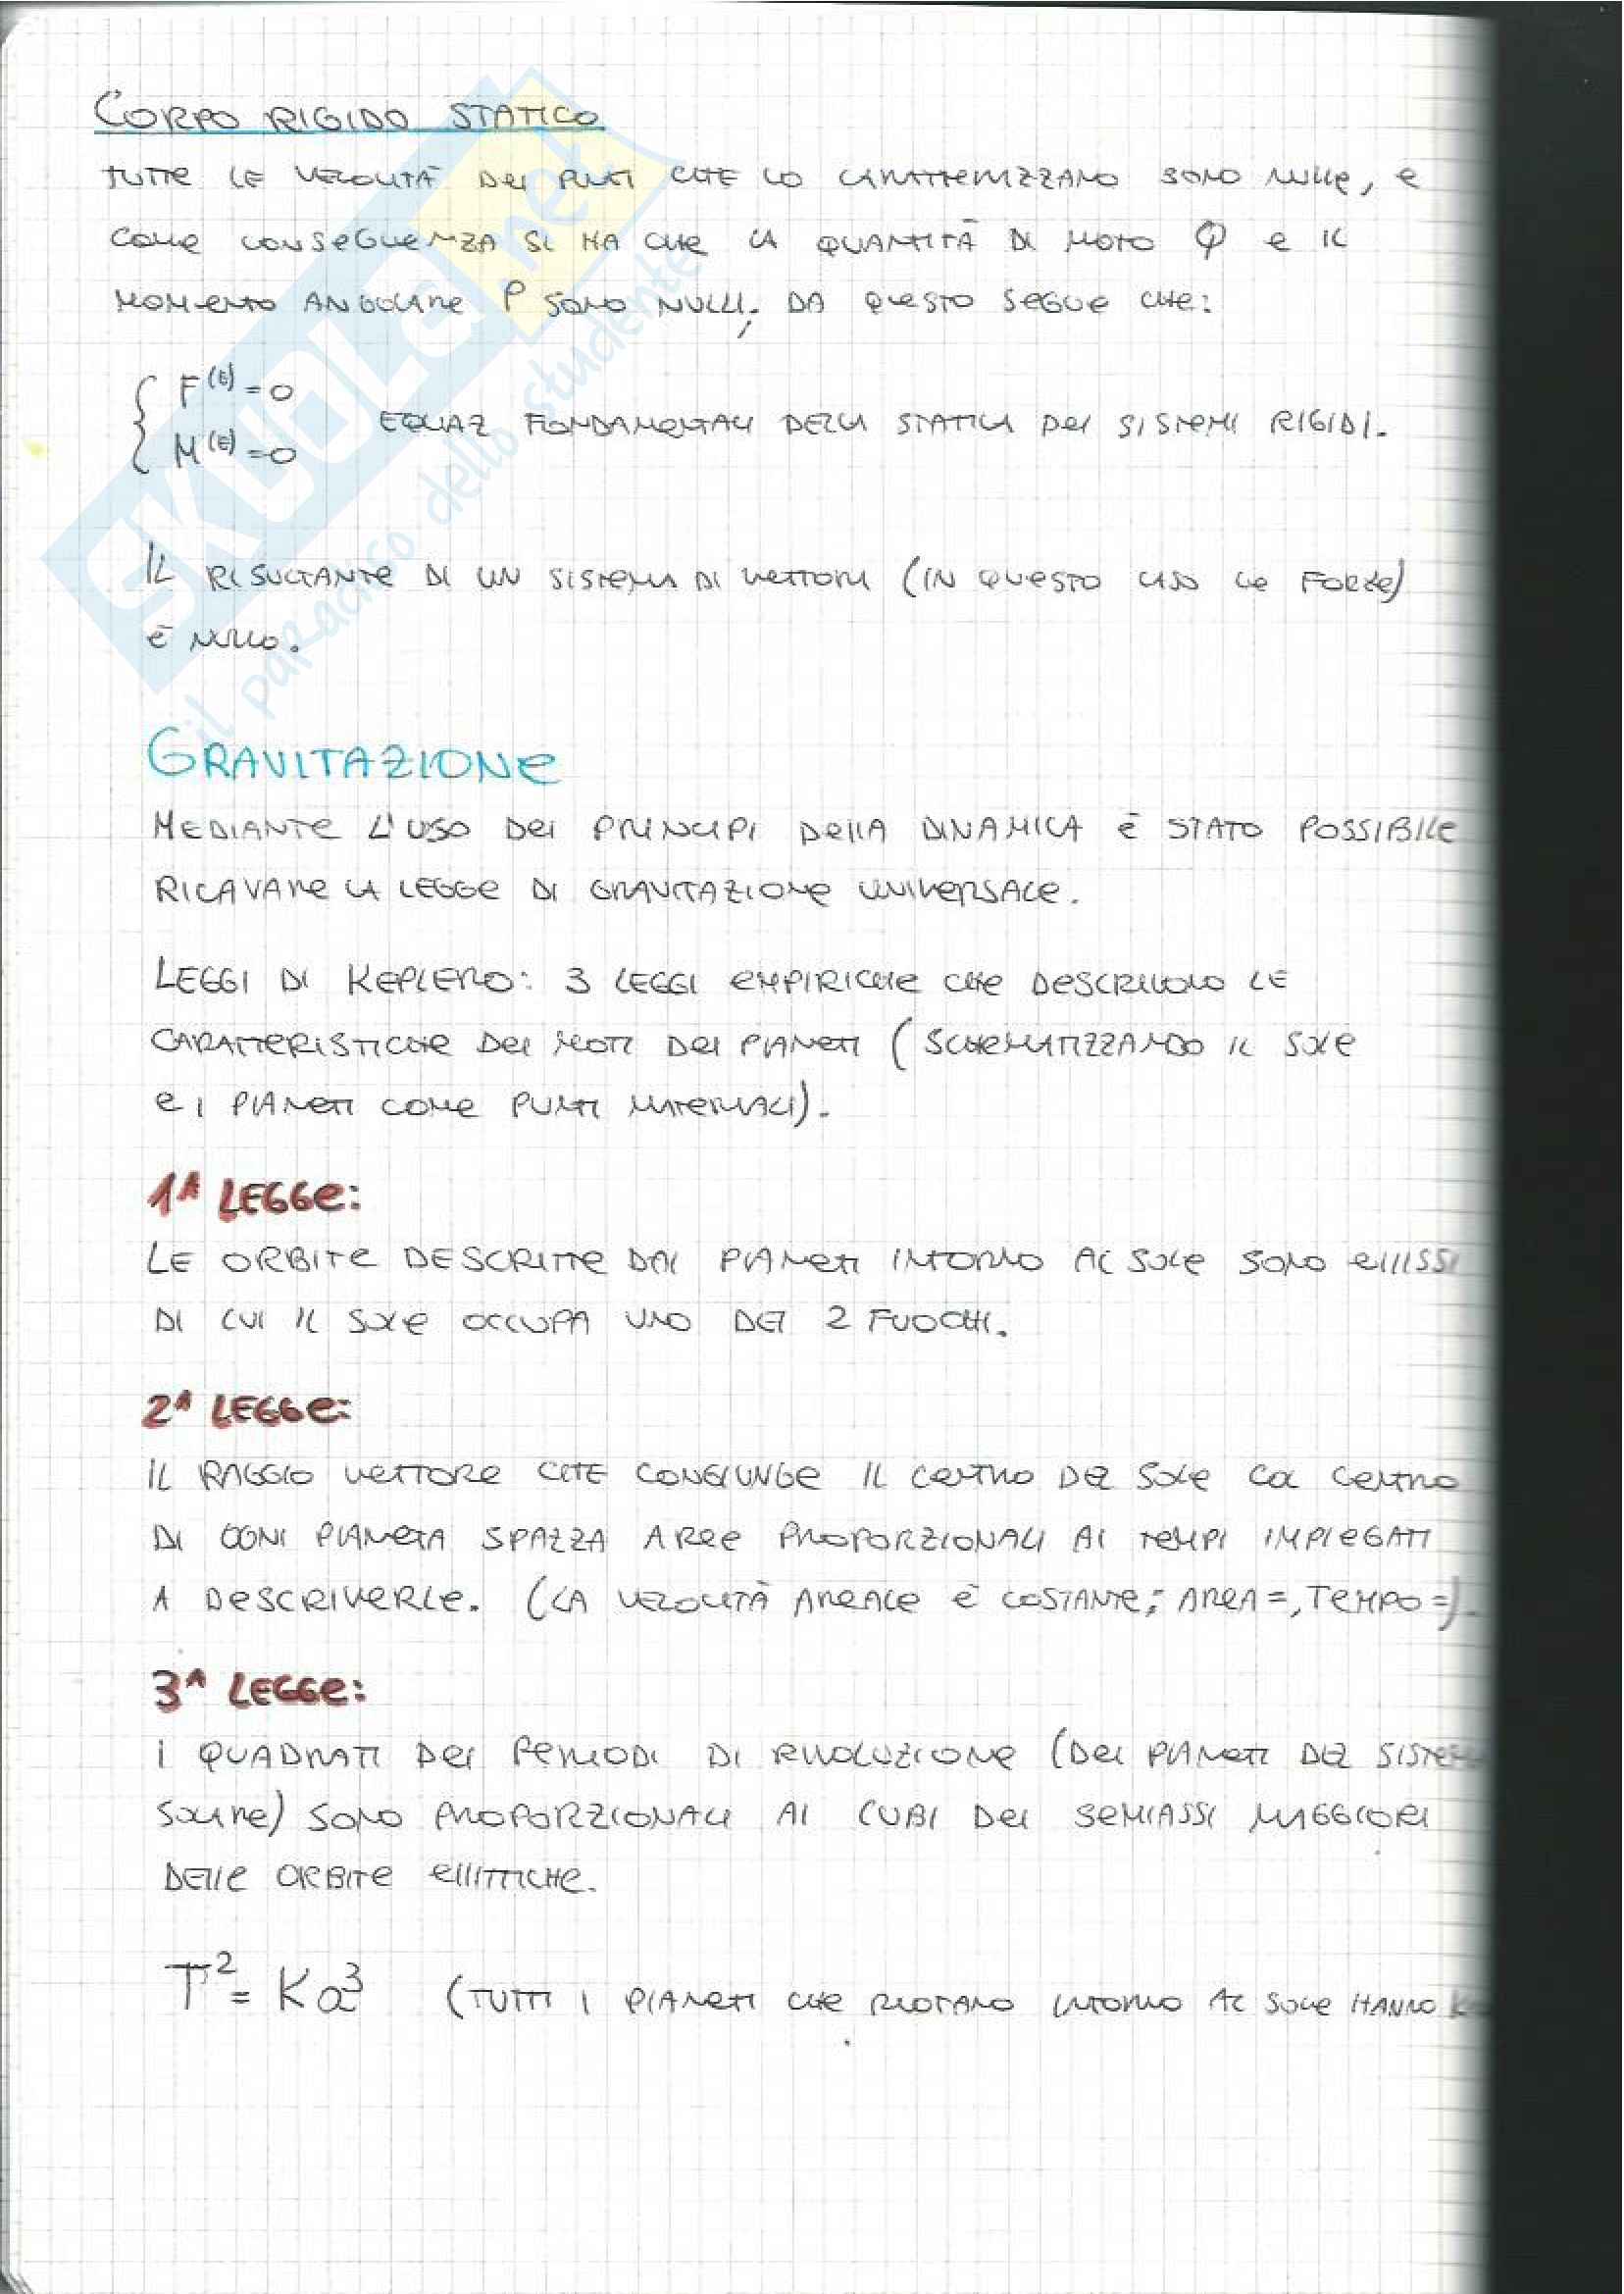 CORPO RIGIDO STATICO
TUTTE LE VELOCITÀ DEI PUNTI CHE LO CARATTERIZZANO SONO NULLE, E
COME CONSEGUENZA SI HA CHE LA QUANTITÀ DI MOTO Q E IL
MOMENTO ANGOLARE P SONO NULLI; DA QUESTO SEGUE CHE:
F^(E) = 0
M^(E) = 0
EQUAZ FONDAMENTALI DELLA STATICA DEI SISTEMI RIGIDI.
IL RISULTANTE DI UN SISTEMA DI VETTORI (IN QUESTO CASO LE FORZE)
È NULLO.
GRAVITAZIONE
MEDIANTE L'USO DEI PRINCIPI DELLA DINAMICA È STATO POSSIBILE
RICAVARE LA LEGGE DI GRAVITAZIONE UNIVERSALE.
LEGGI DI KEPLERO: 3 LEGGI EMPIRICHE CHE DESCRIVONO LE
CARATTERISTICHE DEI MOTI DEI PIANETI (SCHEMATIZZANDO IL SOLE
E I PIANETI COME PUNTI MATERIALI).
1ª LEGGE:
LE ORBITE DESCRITTE DAI PIANETI INTORNO AL SOLE SONO ELLISSI
DI CUI IL SOLE OCCUPA UNO DEI 2 FUOCHI.
2ª LEGGE:
IL RAGGIO VETTORE CHE CONGIUNGE IL CENTRO DEL SOLE COL CENTRO
DI OGNI PIANETA SPAZZA AREE PROPORZIONALI AI TEMPI IMPIEGATI
A DESCRIVERLE. (LA VELOCITÀ AREALE È COSTANTE; AREA =, TEMPO =).
3ª LEGGE:
I QUADRATI DEI PERIODI DI RIVOLUZIONE (DEI PIANETI DEL SISTEMA
SOLARE) SONO PROPORZIONALI AI CUBI DEI SEMIASSI MAGGIORI
DELLE ORBITE ELLITTICHE.
T² = Ka³ (TUTTI I PIANETI CHE RUOTANO INTORNO AL SOLE HANNO
SKUOLA.net
il paradiso dello studente